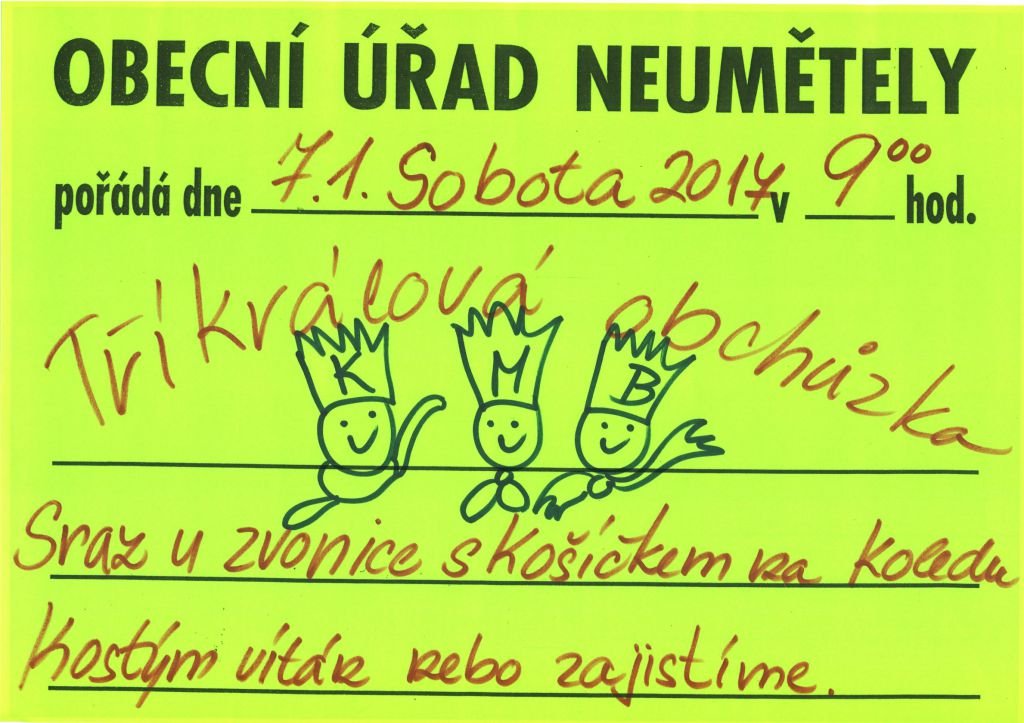 OBECNÍ ÚŘAD NEUMĚTELY
pořádá dne 7.1. Sobota 2017 v 9⁰⁰ hod.
Tříkrálová obchůzka
K M B
Sraz u zvonice s košíčkem na koledu
Kostým vítán nebo zajistíme.